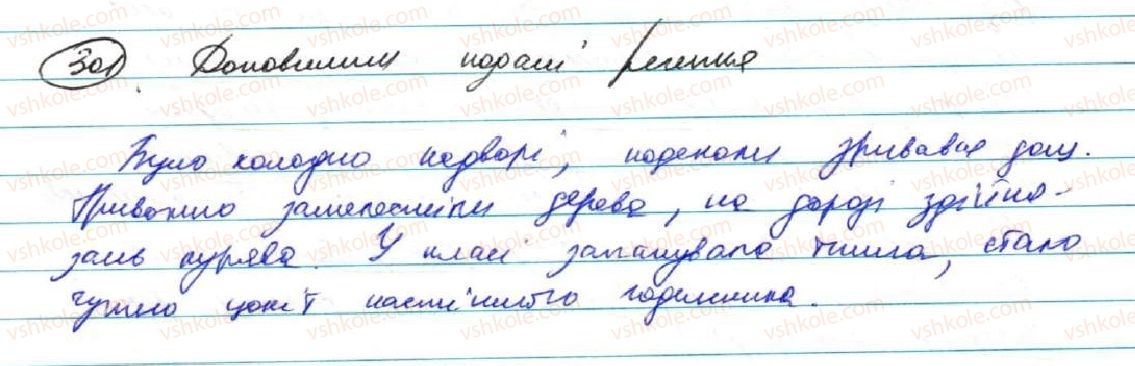 301 Доповнили подані речення
Було холодно надворі, подеколи зривався дощ.
Тривожно зашелестіли дерева, на дорозі здійня-
лась курява. У класі запанувала тиша, стало
чутно цокіт настінного годинника.